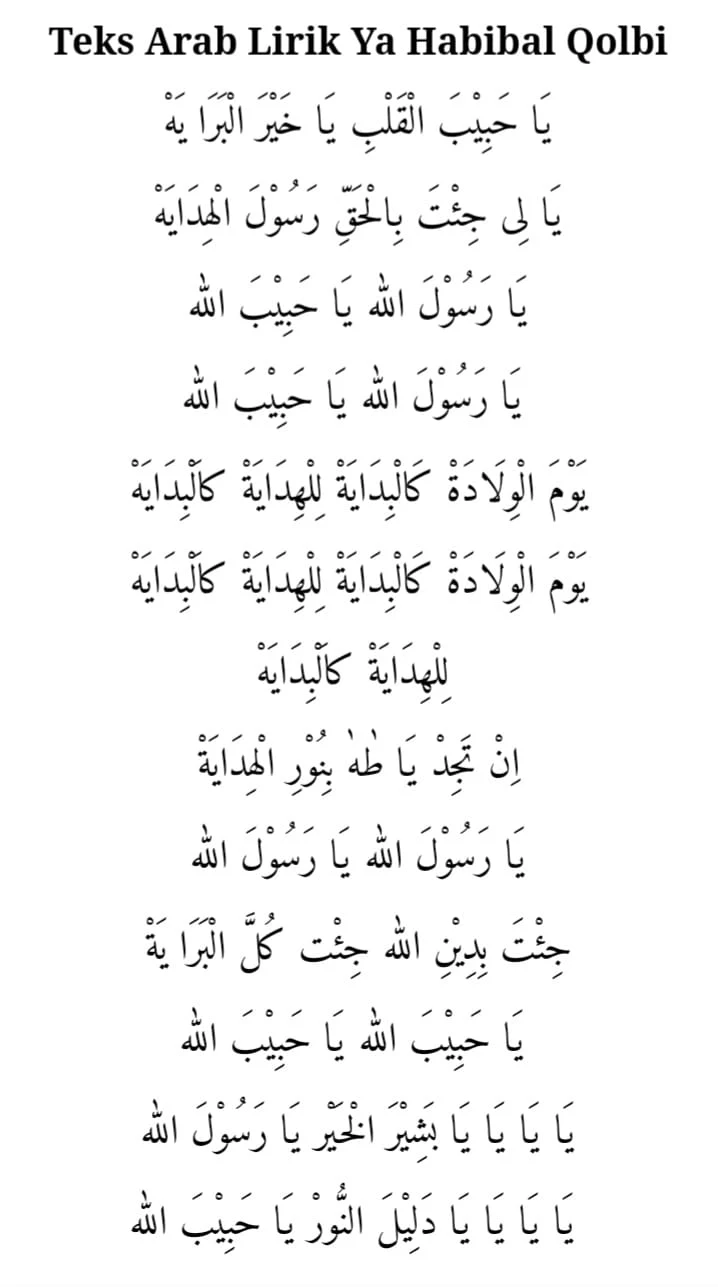 Teks Arab Lirik Ya Habibal Qolbi
يَا حَبِيْبَ الْقَلْبِ يَا خَيْرَ الْبَرَا يَهْ
يَا لِى جِئْتَ بِالْحَقِّ رَسُوْلَ الْهِدَايَهْ
يَا رَسُوْلَ الله يَا حَبِيْبَ الله
يَا رَسُوْلَ الله يَا حَبِيْبَ الله
يَوْمَ الْوِلَادَةْ كَالْبِدَايَةْ لِلْهِدَايَةْ كَالْبِدَايَهْ
يَوْمَ الْوِلَادَةْ كَالْبِدَايَةْ لِلْهِدَايَةْ كَالْبِدَايَهْ
لِلْهِدَايَةْ كَالْبِدَايَهْ
اِنْ تَجِدْ يَا طٰهٰ بِنُوْرِ الْهِدَايَةْ
يَا رَسُوْلَ الله يَا رَسُوْلَ الله
جِئْتَ بِدِيْنِ الله جِئْت كُلَّ الْبَرَا يَةْ
يَا حَبِيْبَ الله يَا حَبِيْبَ الله
يَا يَا يَا يَا بَشِيْرَ الْخَيْر يَا رَسُوْلَ الله
يَا يَا يَا يَا دَلِيْلَ النُّوْرْ يَا حَبِيْبَ الله